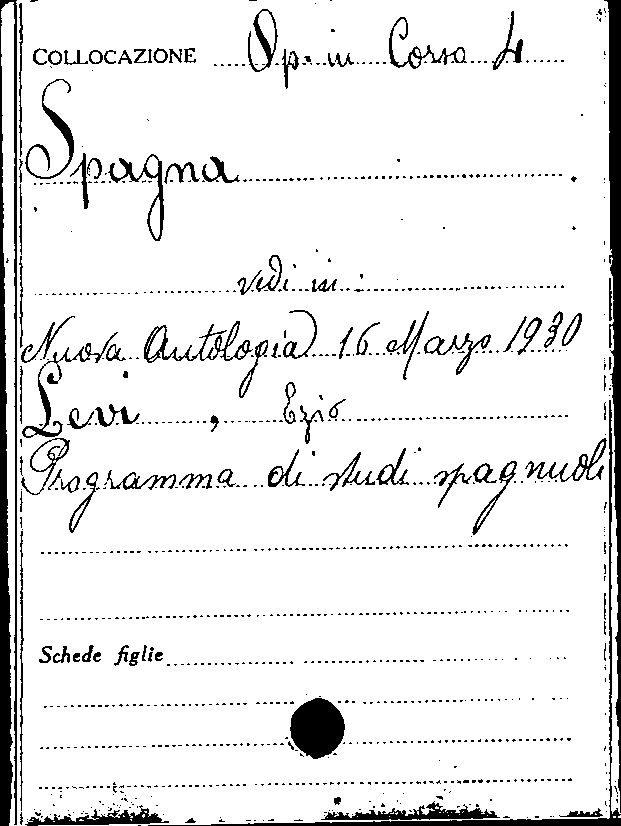 COLLOCAZIONE Op. in Corso 4
Spagna
vedi in :
Nuova Antologia) 16 Marzo 1930
Levi , Ezio
Programma di studi spagnuoli
Schede figlie